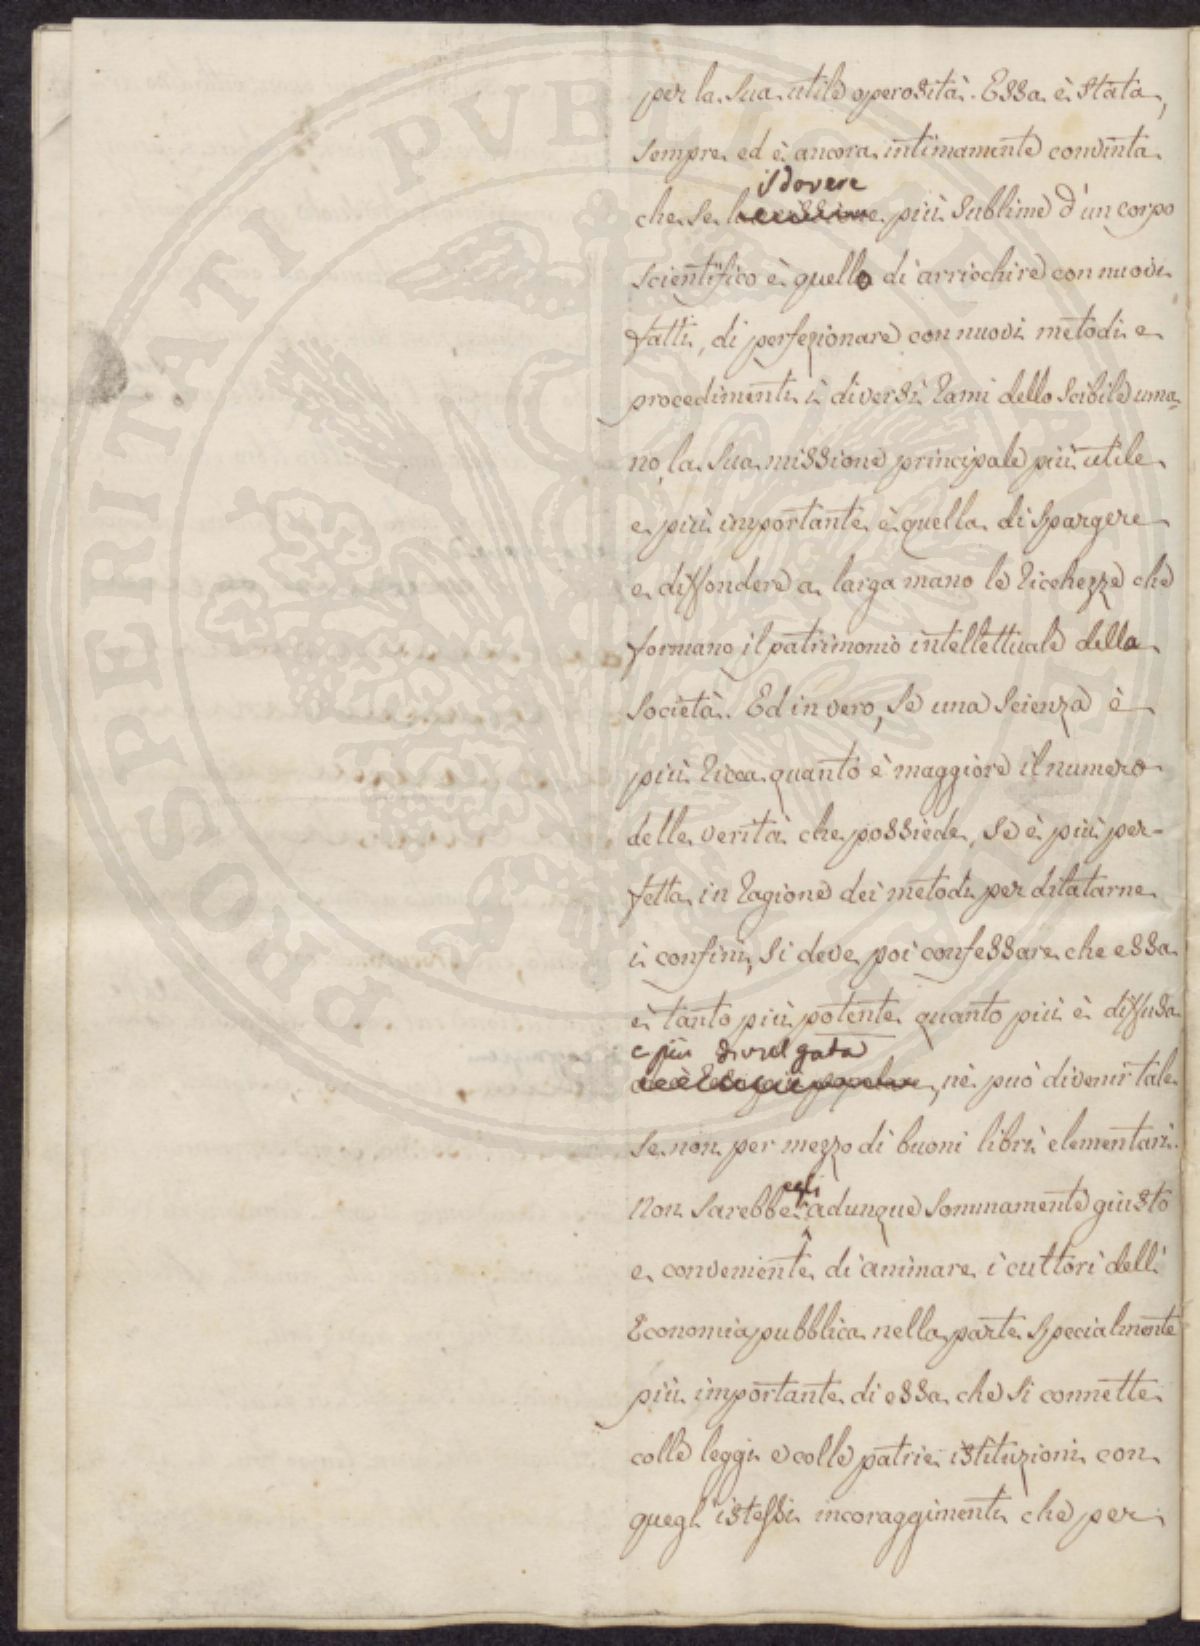 per la sua utile operosità. Essa è stata,
sempre ed è ancora intimamente convinta
il dovere
che se la missione più sublime d'un corpo
scientifico è quello di arricchire con nuovi
fatti, di perfezionare con nuovi metodi e
procedimenti i diversi rami dello scibile uma-
no, la sua missione principale più utile
e più importante è quella di spargere
e diffondere a larga mano le ricchezze che
formano il patrimonio intellettuale della
società. Ed in vero, se una scienza è
più ricca quanto è maggiore il numero
delle verità che possiede, se è più per-
fetta in ragione dei metodi per dilatarne
i confini, si deve poi confessare che essa
è tanto più potente quanto più è diffusa
e più divulgata
, nè può divenir tale
se non per mezzo di buoni libri elementari.
egli
Non sarebbe adunque sommamente giusto
e conveniente di animare i cultori dell'
Economia pubblica nella parte specialmente
più importante di essa che si connette
colle leggi e colle patrie istituzioni con
quegl'istessi incoraggimenti che per
PROSPERITATI PUBLICAE